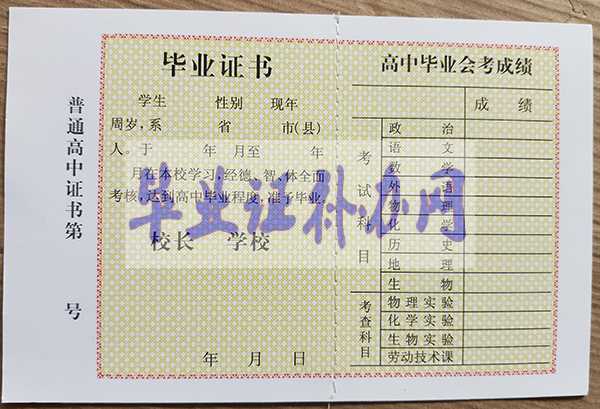 普通高中证书第 号
毕业证书
学生 性别 现年
周岁，系 省 市(县)
人。于 年 月至 年
月在本校学习，经德、智、体全面
考核，达到高中毕业程度，准予毕业。
校长 学校
年 月 日
毕业证补办网
高中毕业会考成绩
成 绩
考试科目
政 治
语 文
数 学
外 语
物 理
化 学
历 史
地 理
生 物
考查科目
物理实验
化学实验
生物实验
劳动技术课